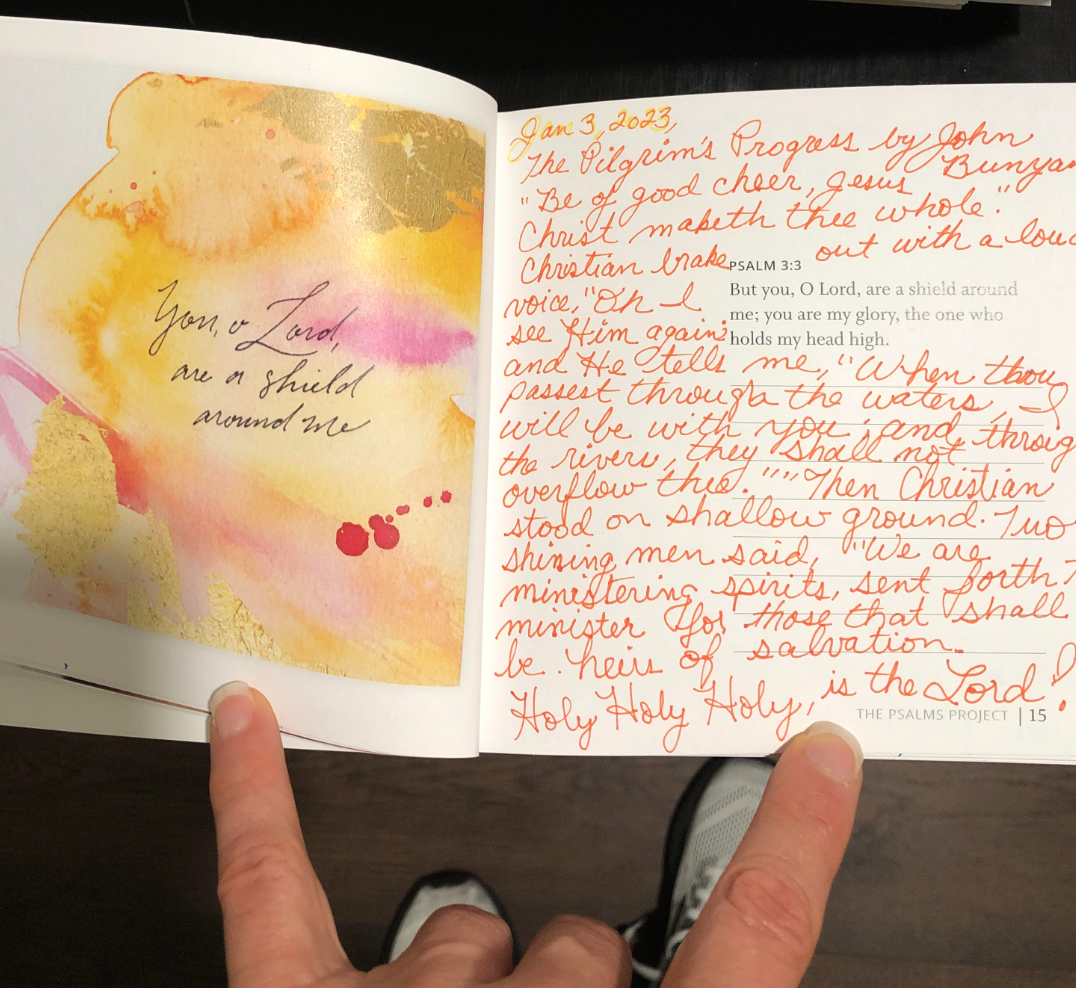 You, o Lord,
are a shield
around me
Jan 3, 2023,
The Pilgrim's Progress by John
Bunyan
"Be of good cheer, Jesus
Christ maketh thee whole."
Christian brake out with a loud
voice, "Oh I
see Him again;
PSALM 3:3
But you, O Lord, are a shield around
me; you are my glory, the one who
holds my head high.
and He tells me, "When thou
passest through the waters, I
will be with you; and, throug
the rivers, they shall not
overflow thee.""" Then Christian
stood on shallow ground. Two
shining men said, "We are
ministering spirits, sent forth
minister for those that shall
be heirs of salvation.
Holy Holy Holy, is the Lord!
THE PSALMS PROJECT | 15